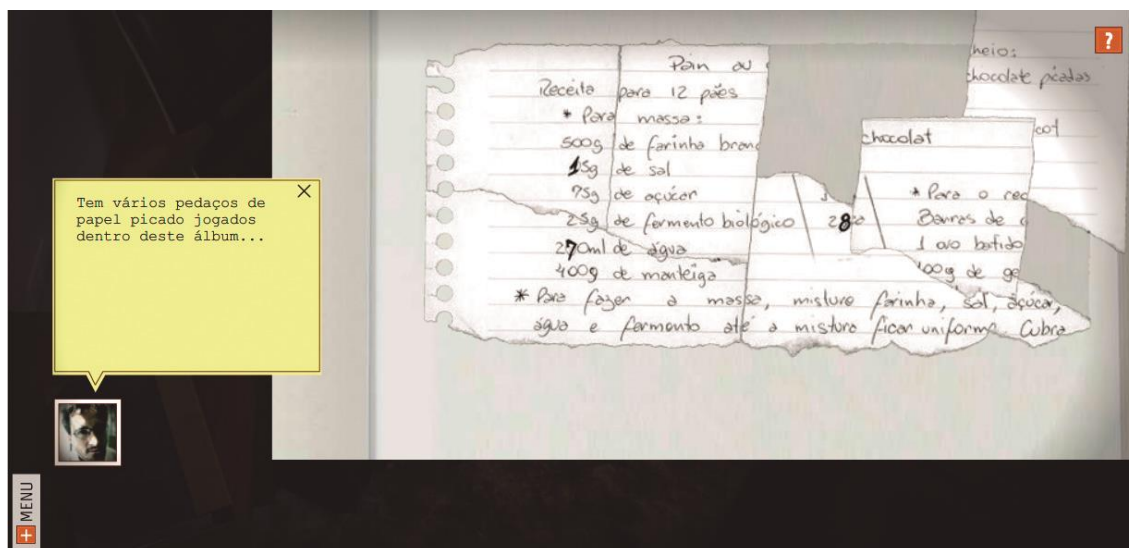 Tem vários pedaços de
papel picado jogados
dentro deste álbum...
MENU
?
Pain au
Receita para 12 pães
* Para massa:
500g de farinha bran
15g de sal
75g de açúcar
25g de fermento biológico 28
270ml de água
400g de manteiga
* Para fazer a massa, misture farinha, sal, açúcar,
água e fermento até a mistura ficar uniforme Cubra
chocolat
* Para o rec
Barras de c
1 ovo batido
100g de ge
heio:
chocolate picadas
cot